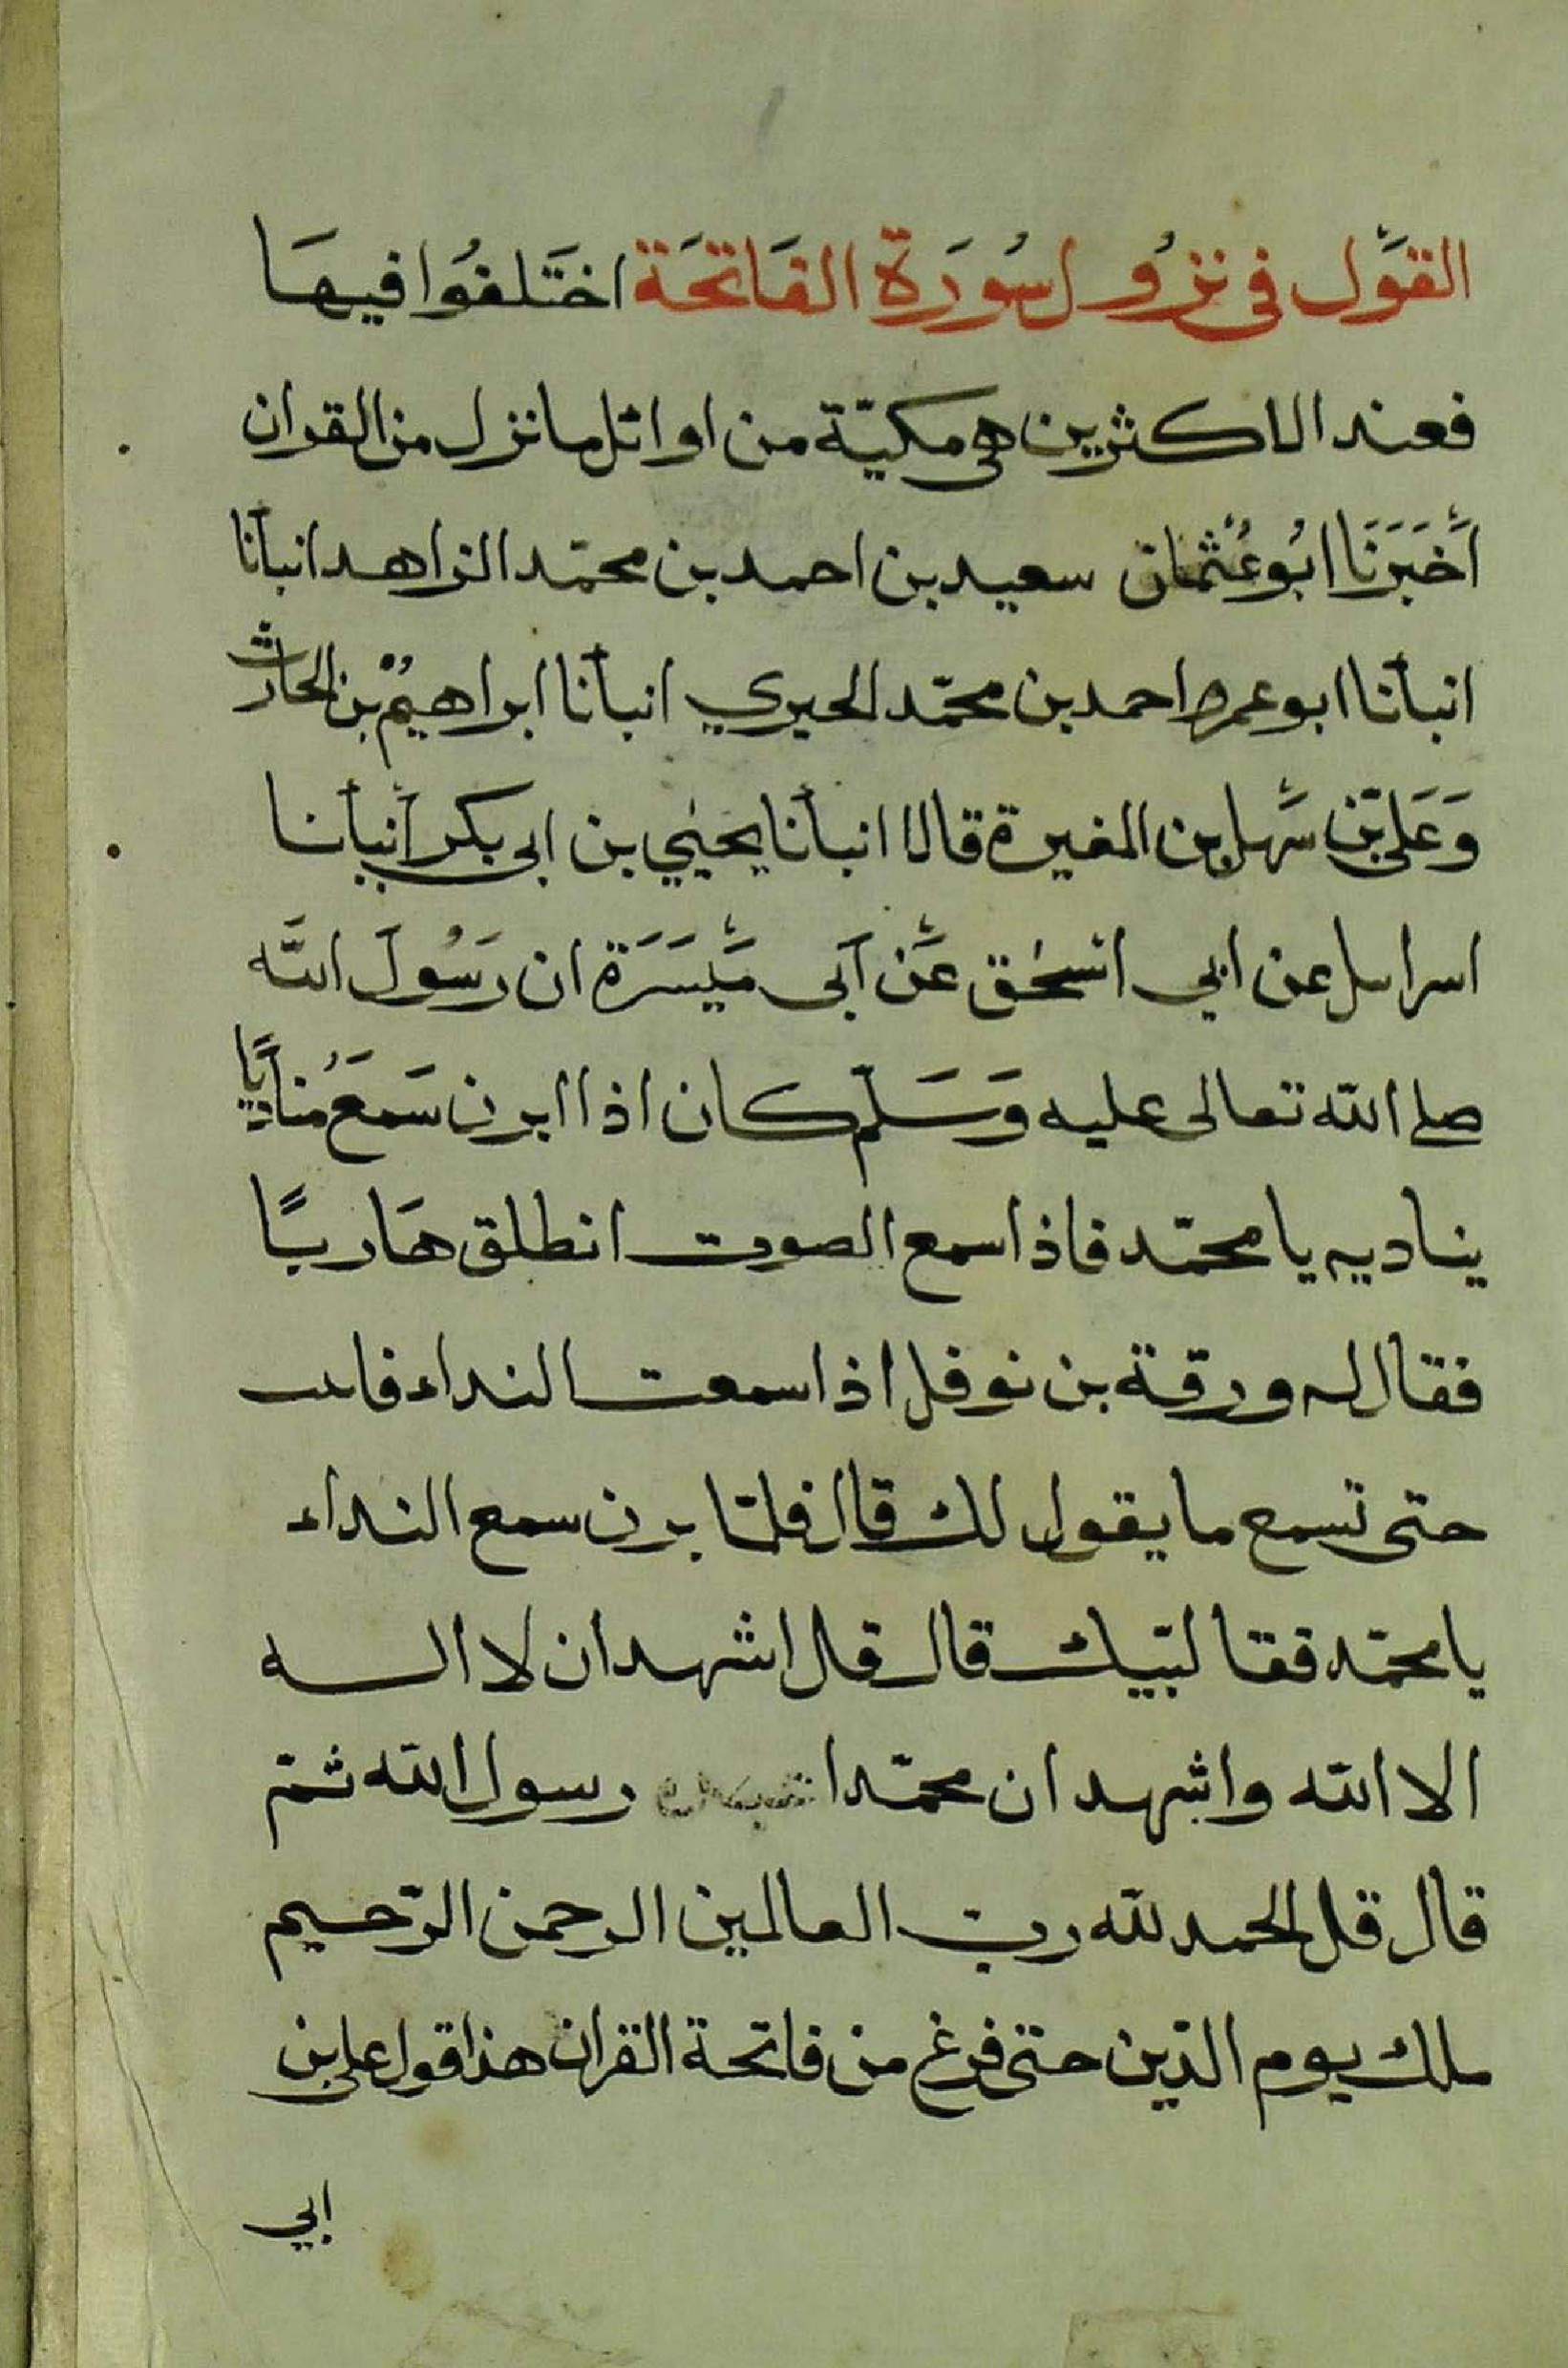 القَوْل فى نزُول سُورَة الفَاتحَة اختَلفُوا فيهَا
فعند الاكثرين هى مكيّة من اوائل ما نزل من القران
أَخبَرَنَا ابُو عُثمان سعيد بن احمد بن محمّد الزاهد انبأنا
انبأنا ابو عمرو احمد بن محمّد الحيري انبأنا ابراهيمُ بن الحارث
وَعَلى بن سَهل بن المغيرة قالا انبأنا يحيٰي بن ابى بكر أنبأنا
اسراىل عن ابي اسحٰق عَن آبى مَيسَرَة ان رَسُولَ الله
صلى الله تعالى عليه وَسَلّم كان اذا ابرن سَمعَ مُناديًا
يناديه يا محمّد فاذا سمع الصوت انطلق هَاربًا
فقال له ورقة بن نوفل اذا سمعت النداء فاىت
حتى تسمع ما يقول لك قال فلمّا برن سمع النداء
يا محمّد فقا لبّيك قال قل اشهد ان لا اله
الا الله واشهد ان محمّدا رسول الله ثمّ
قال قل الحمد لله رب العالمين الرحمن الرّحيم
ملك يوم الدّين حتى فرغ من فاتحة القران هذا قول على بن
ابي